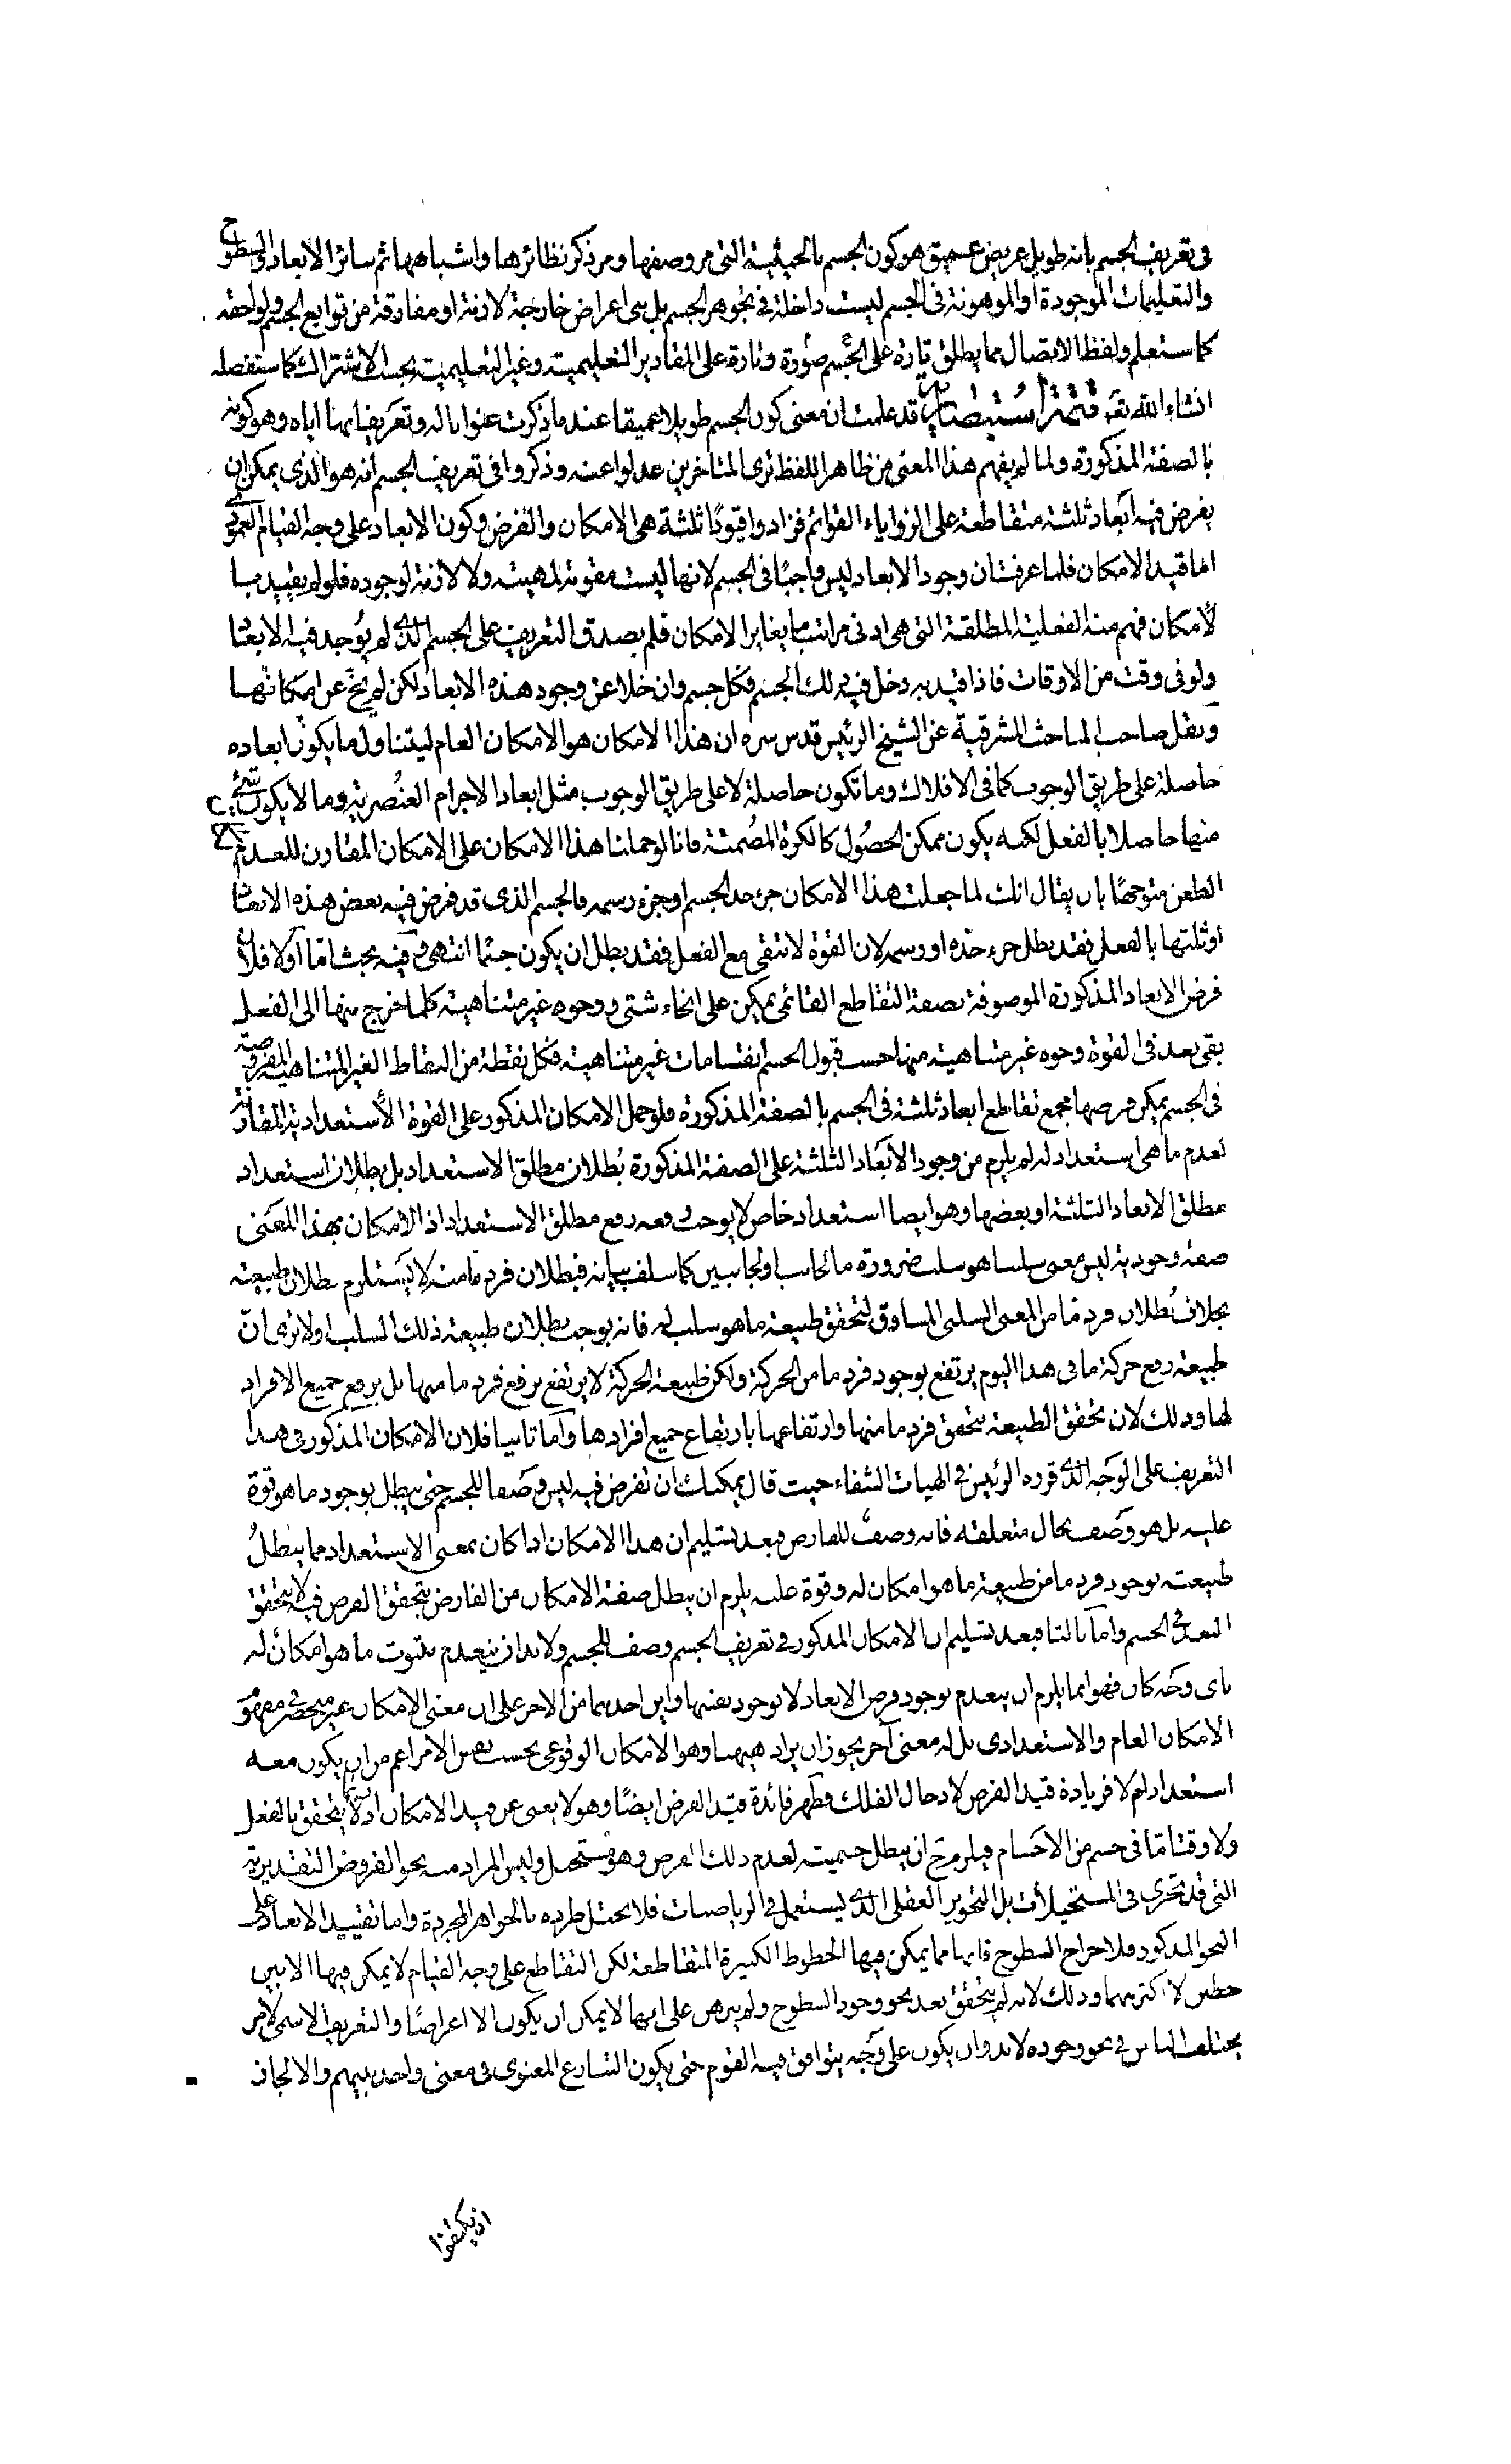 فى تعريف الجسم بانه طويل عريض عميق هو كون الجسم بالحيثية التى مر وصفها ومر ذكر نظائرها واشباهها ثم سائر الابعاد والسطوح
والتعليمات الموجودة او الموهومة فى الجسم ليست داخلة فى تجوهر الجسم بل هى اعراض خارجة لازمة او مفارقة من توابع الجسم ولواحقه
كما ستعلم ولفظ الاتصال مما يطلق تارة على الجسم صورة وتارة على المقادير التعليمية وغير التعليمية بحسب الاشتراك كما ستفصله
انشاء الله تعه تتمة استبصارية قد علمت ان معنى كون الجسم طويلا عميقا عند ما ذكرت عنوانا له وتعريفا بها اياه وهو كونه
بالصفة المذكورة ولما لم يفهم هذا المعنى من ظاهر اللفظ ترى المتاخرين عدلوا عنه وذكروا فى تعريف الجسم انه هو الذى يمكن ان
يفرض فيه ابعاد ثلثة متقاطعة على الزواياء القوائم فزادوا قيودًا ثلثة هى الامكان والفرض وكون الابعاد على وجه القيام العمودى
اما قيد الامكان فلما عرفت ان وجود الابعاد ليس واجبًا فى الجسم لانها ليست مقومة لمهيته ولا لازمة لوجوده فلو لم يقيد با
لأمكان فهم منه الفعلية المطلقة التى هى ادنى مراتب ما يغاير الامكان فلم يصدق التعريف على الجسم الذى لم يوجد فيه الابعاد
ولو فى وقت من الاوقات فاذا قيد به دخل فيه ذلك الجسم فكل جسم وان خلا عن وجود هذه الابعاد لكن لم يخ عن امكانها
ونقل صاحب المباحث المشرقية عن الشيخ الرئيس قدس سره ان هذا الامكان هو الامكان العام ليتناول ما يكون ابعاده
حاصلة على طريق الوجوب كما فى الافلاك وما تكون حاصلة لا على طريق الوجوب مثل ابعاد الاجرام العنصرية وما لا يكون شئ
منها حاصلا بالفعل لكنه يكون ممكن الحصول كالكرة المصمتة فانا لو حملنا هذا الامكان على الامكان المقارن للعدم
الطعن متوجهًا بان يقال انك لما جعلت هذا الامكان جزء حد الجسم او جزء رسمه فالجسم الذى قد فرض فيه بعض هذه الابعاد
او ثلثتها بالفعل فقد بطل جزء حده او رسمه لان القوة لا تبقى مع الفعل فقد بطل ان يكون جسمًا انتهى وفيه بحث امّا اولا فلان
فرض الابعاد المذكورة الموصوفة بصفة التقاطع القائمى يمكن على انحاء شتى ووجوه غير متناهية كلما خرج منها الى الفعل
بقى بعد فى القوة وجوه غير متناهية منها حسب قبول الجسم انقسامات غير متناهية فكل نقطة من النقاط الغير المتناهية المفروضة
فى الجسم يمكن فرضها مجمع تقاطع ابعاد ثلثة فى الجسم بالصفة المذكورة فلو حمل الامكان المذكور على القوة الأستعدادية المقارنة
لعدم ما هى استعداد له لم يلزم من وجود الابعاد الثلثة على الصفة المذكورة بطلان مطلق الاستعداد بل بطلان استعداد
مطلق الابعاد الثلثة او بعضها وهو ايضا استعداد خاص لا يوجب رفعه رفع مطلق الاستعداد اذ الامكان بهذا المعنى
صفة وجودية ليس معنى سلبيا هو سلب ضرورة ما لجانب او لجانبين كما سلف بيانه فبطلان فرد ما منه لا يستلزم بطلان طبيعته
بخلاف بطلان فرد ما من المعنى السلبى المساوق لتحقق طبيعة ما هو سلب له فانه يوجب بطلان طبيعة ذلك السلب او لا ترى انّ
طبيعة رفع حركة ما فى هذا اليوم يرتفع بوجود فرد ما من الحركة ولكن طبيعة الحركة لا يرتفع برفع فرد ما منها بل برفع جميع الافراد
لها وذلك لان تحقق الطبيعة بتحقق فرد ما منها وارتفاعها بارتفاع جميع افرادها واما ثانيا فلان الامكان المذكور فى هذا
التعريف على الوجه الذى قرره الرئيس فى الهيات الشفاء حيث قال يمكنك ان تفرض فيه ليس وصفا للجسم حتى يبطل بوجود ما هو قوة
عليه بل هو وصف بحال متعلقه فانه وصف للفارض فبعد تسليم ان هذا الامكان اذا كان بمعنى الاستعداد مما يبطل
طبيعته بوجود فرد ما من طبيعة ما هو امكان له وقوة عليه يلزم ان يبطل صفة الامكان من الفارض بتحقق الفرض فيه لا بتحقق
البعد فى الجسم واما ثالثا فبعد تسليم ان الامكان المذكور فى تعريف الجسم وصف للجسم ولا بد ان ينعدم بثبوت ما هو امكان له
باى وجه كان فهو انما يلزم ان ينعدم بوجود فرض الابعاد لا بوجود نفسها واين احدهما من الاخر على ان معنى الامكان غير منحصر فى مفهوم
الامكان العام والاستعدادى بل له معنى اخر يجوز ان يراد ههنا وهو الامكان الوقوعى بحسب نفس الامر اعم من ان يكون معه
استعداد ام لا فزيادة قيد الفرض لادخال الفلك فظهر فائدة قيد الفرض ايضًا وهو لا يغنى عن قيد الامكان اذ لا يتحقق بالفعل
ولا وقتا مّا فى جسم من الاجسام فيلزم ح ان يبطل جسميته لعدم ذلك الفرض وهو مستحيل وليس المراد منه نحو الفروض التقديرية
التى قد تجرى فى المستحيلات بل التجويز العقلى الذى يستعمل فى الرياضيات فلا يختل طرده بالجواهر المجردة واما تقييد الابعاد على
النحو المذكور فلاخراج السطوح فانها مما يمكن فيها الخطوط الكثيرة المتقاطعة لكن التقاطع على وجه القيام لا يمكن فيها الا بين
خطين لا اكثر منهما وذلك لانه لم يتحقق بعد نحو وجود السطوح ولم يبرهن على انها لا يمكن ان يكون الا اعراضًا والتعريف الاسمى لامر
يختلف الناس فى نحو وجوده لا بد وان يكون على وجه يتوافق فيه القوم حتى يكون التنازع المعنوى فى معنى واحد بينهم والا لجاز